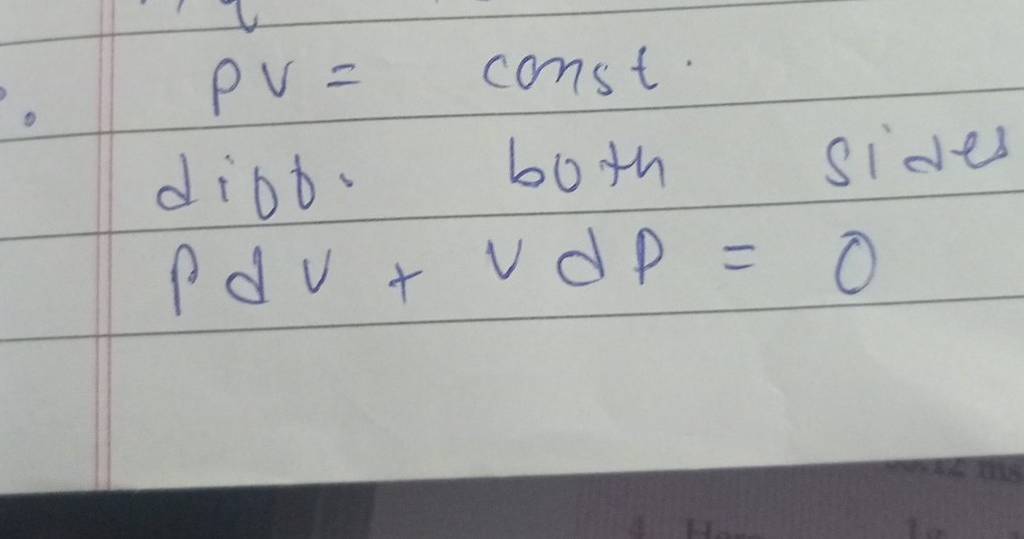 PV = const.
diff. both sides
PdV + VdP = 0